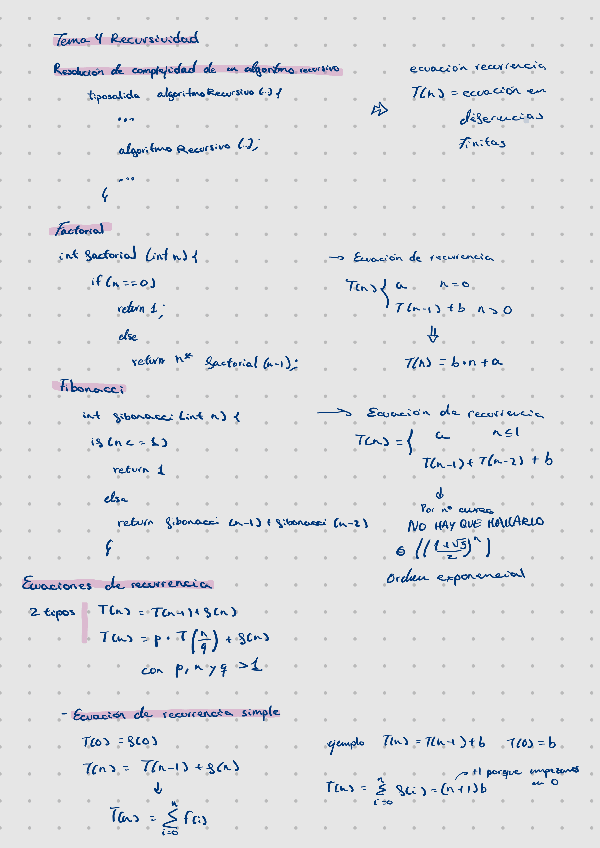 Tema 4 Recursividad
Resolución de complejidad de un algoritmo recursivo
tiposalida algoritmoRecursivo (.) {
...
algoritmo Recursivo (.);
...
}
ecuación recurrencia
⇒ T(n) = ecuación en
diferencias
finitas
Factorial
int factorial (int n) {
if (n == 0)
return 1;
else
return n* factorial (n-1);
→ Ecuación de recurrencia
T(n) { a n=0
T(n-1) + b n>0
⇓
T(n) = b·n + a
Fibonacci
int fibonacci (int n) {
if (n <= 1)
return 1
else
return fibonacci (n-1) + fibonacci (n-2)
}
→ Ecuación de recurrencia
T(n) = { a n≤1
T(n-1) + T(n-2) + b
↓
Por nº aureo
NO HAY QUE HALLARLO
Θ (((1+√5)/2)^n)
Orden exponencial
Ecuaciones de recurrencia
2 tipos T(n) = T(n-1) + f(n)
T(n) = p · T(n/q) + f(n)
con p, n y q > 1
- Ecuación de recurrencia simple
T(0) = f(0)
T(n) = T(n-1) + f(n)
↓
T(n) = Σ_{i=0}^{n} f(i)
ejemplo T(n) = T(n-1) + b T(0) = b
→ +1 porque empezamos
en 0
T(n) = Σ_{i=0}^{n} f(i) = (n+1)b